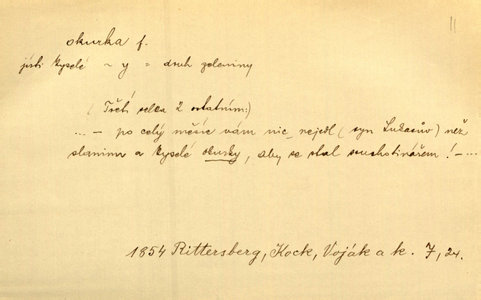 11
okurka f.
jísti kyselé ~ y = druh zeleniny
(Třetí selka 2 ostatním:)
... – po celý měsíc vám nic nejedl (syn Lukasův) než
slaninu a kyselé okurky, aby se stal souchotinářem! – ...
1854 Rittersberg, Kock, Voják a k. 7, 24.